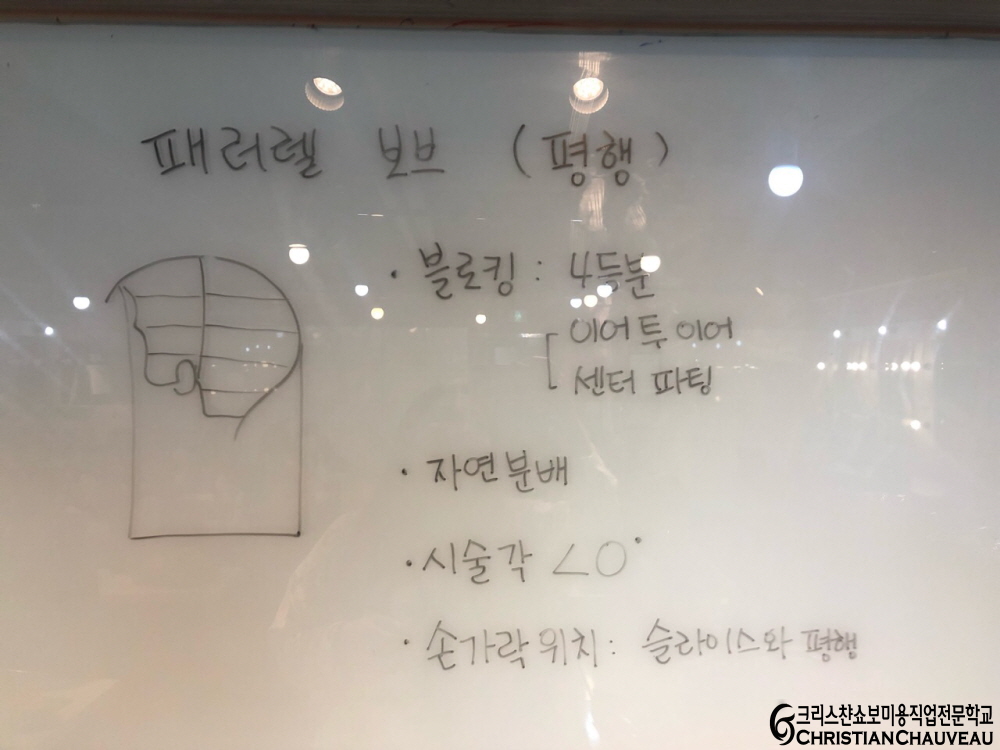 패러렐 보브 (평행)
· 블로킹 : 4등분
이어 투 이어
센터 파팅
· 자연분배
· 시술각 ∠0°
· 손가락 위치 : 슬라이스와 평행
크리스챤쇼보미용직업전문학교
CHRISTIANCHAUVEAU